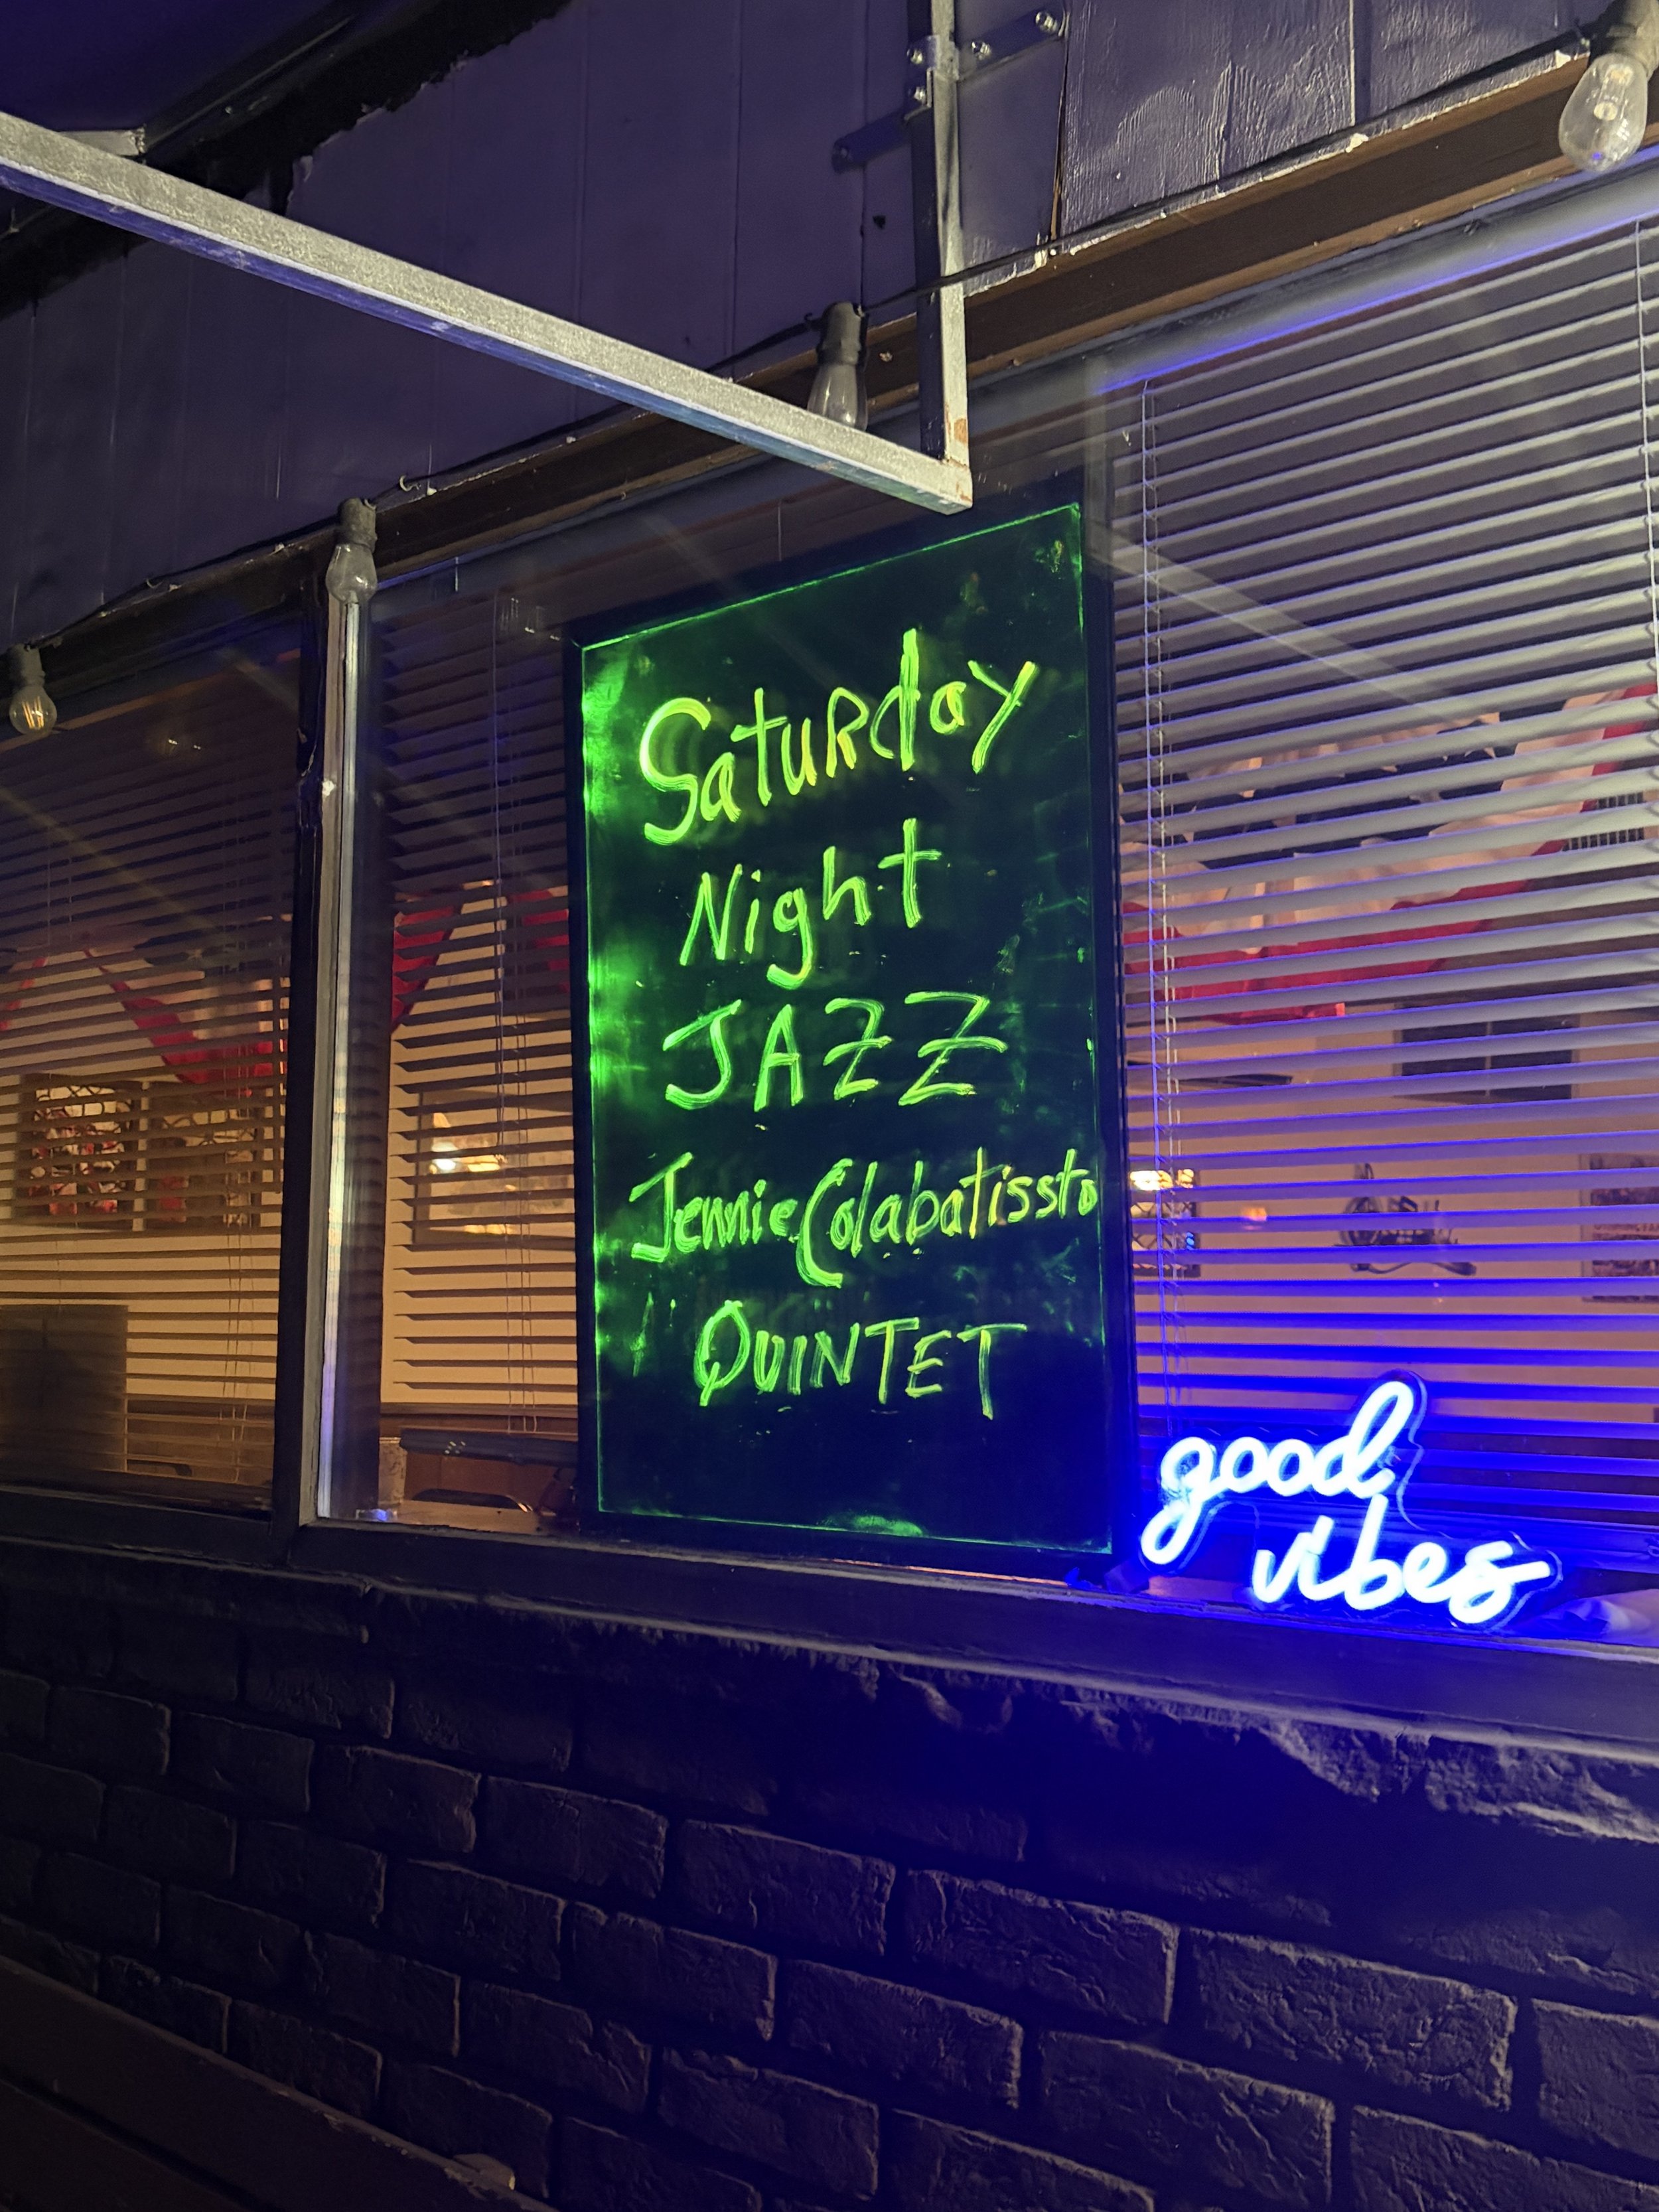 Saturday
Night
JAZZ
Jennie Colabatissto
QUINTET
good
vibes